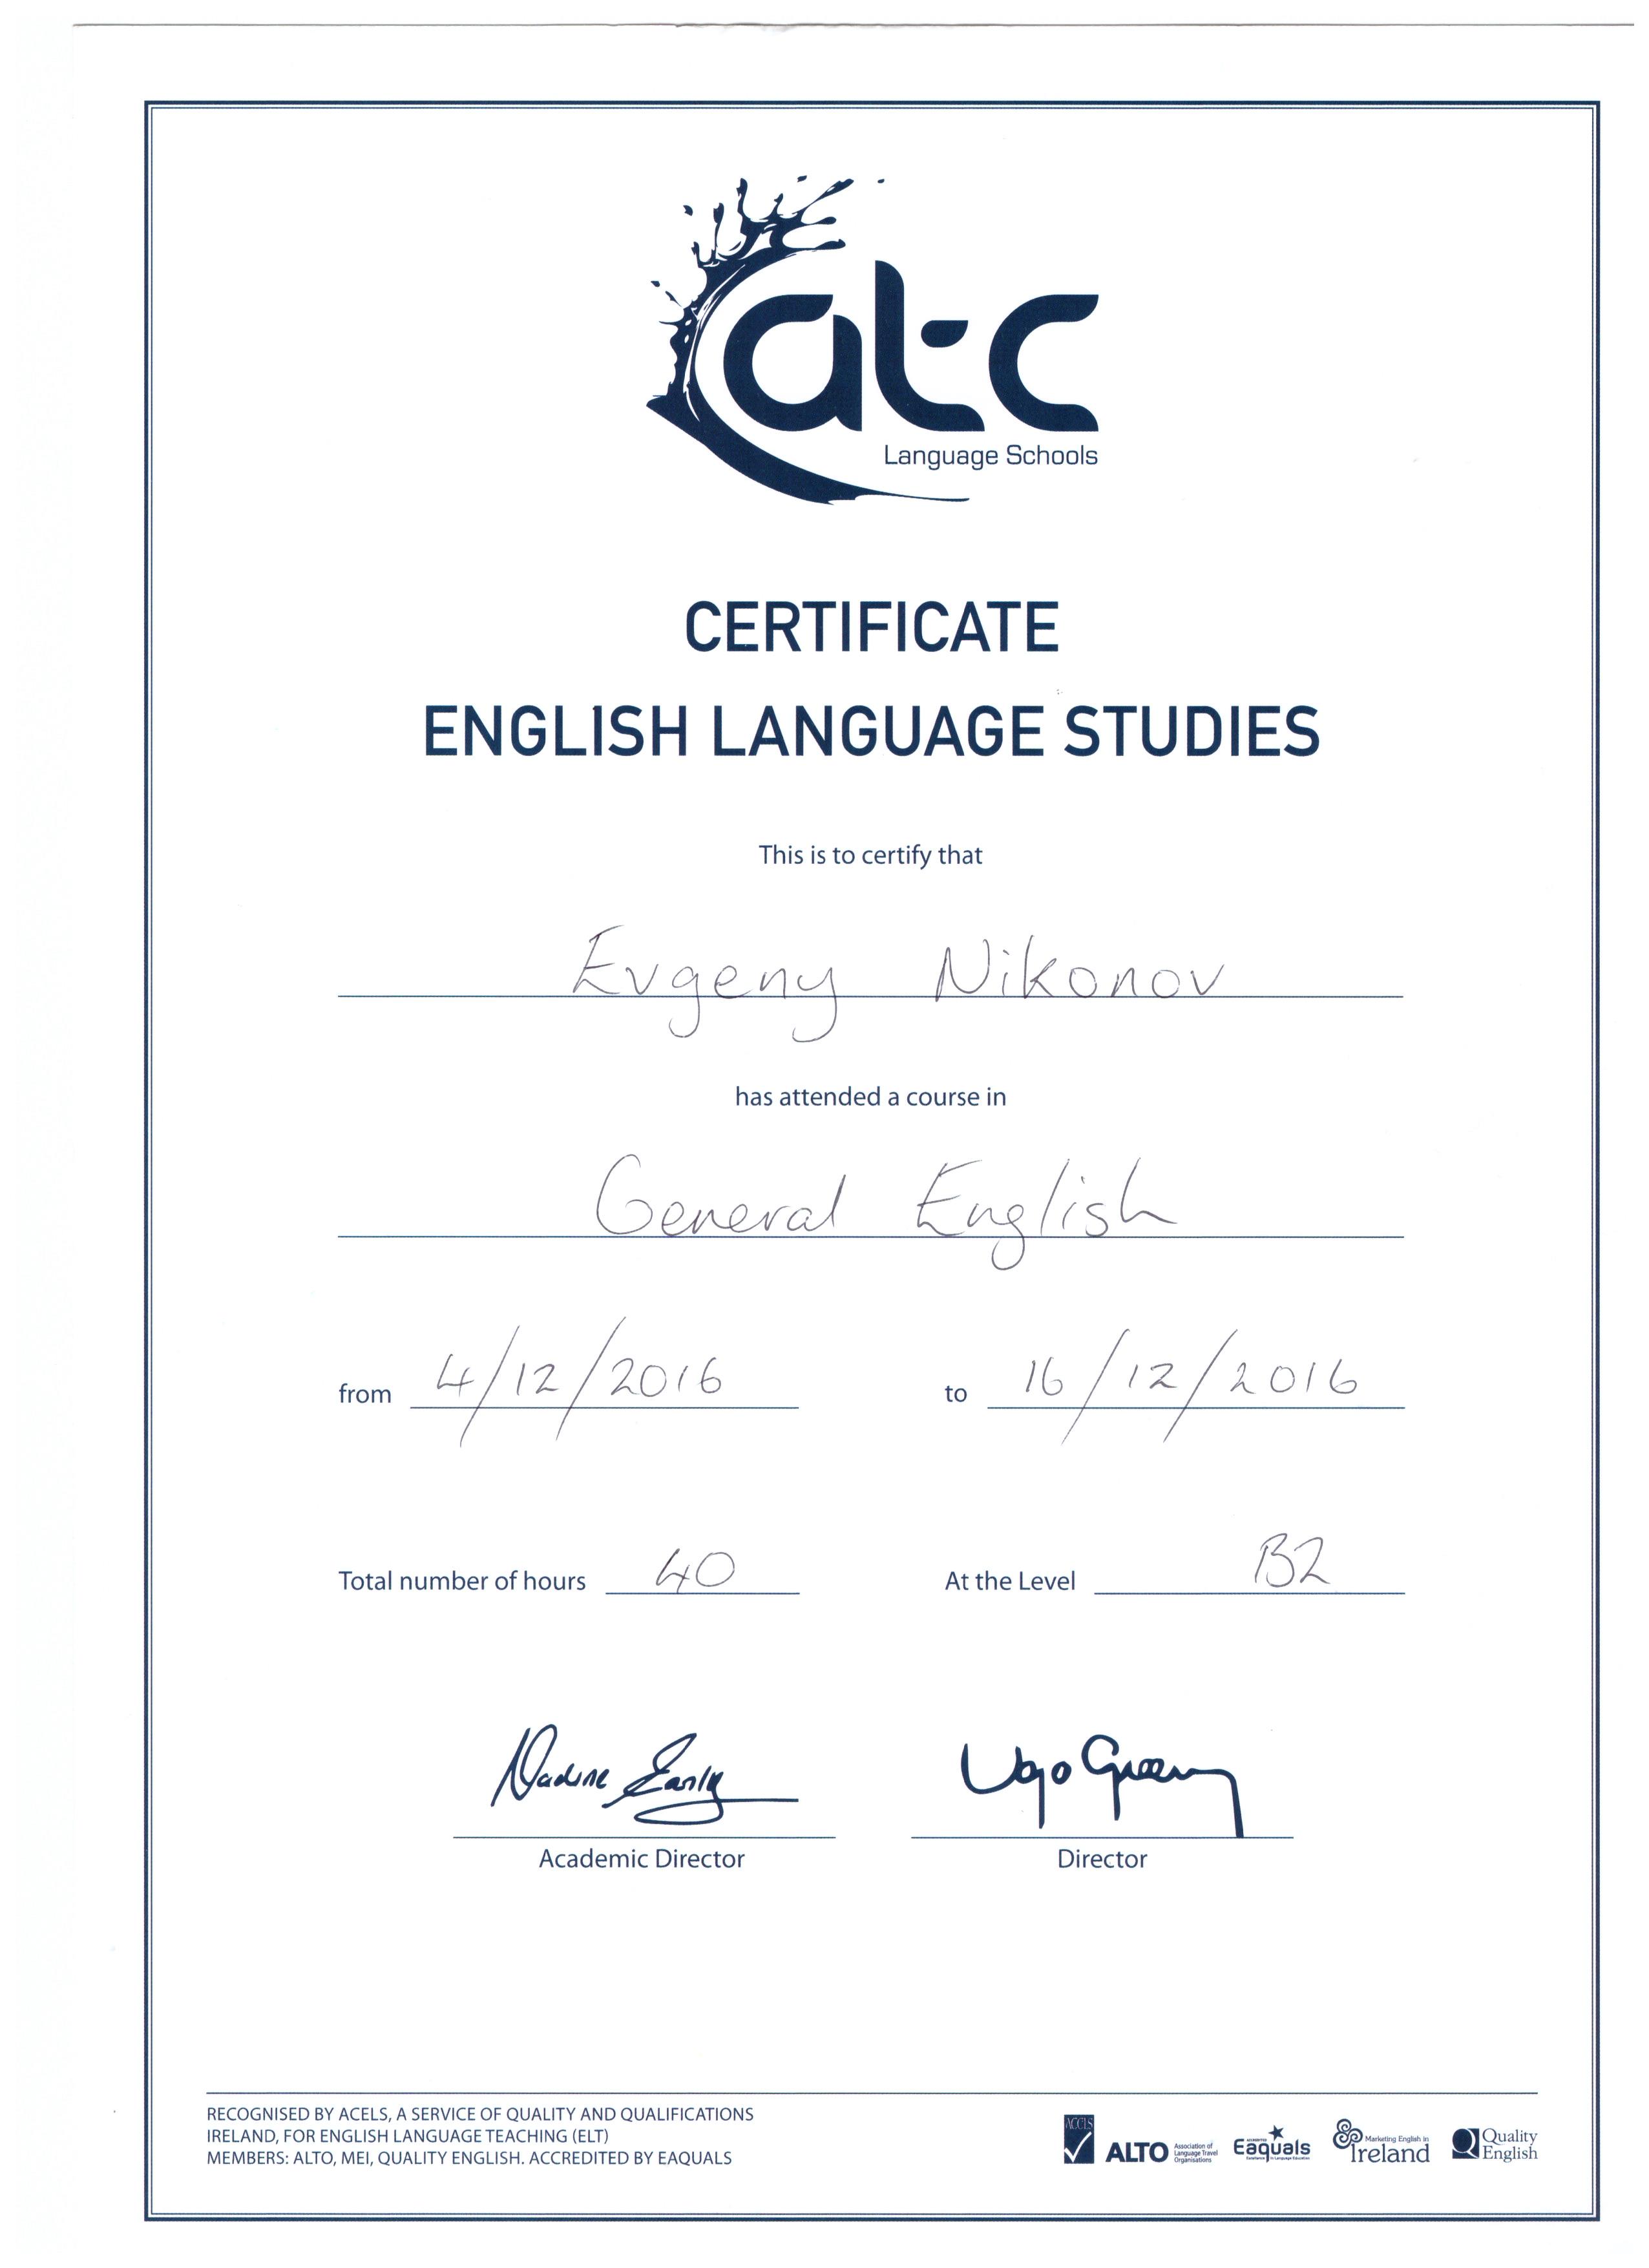 atc
Language Schools
CERTIFICATE
ENGLISH LANGUAGE STUDIES
This is to certify that
Evgeny Nikonov
has attended a course in
General English
from 4/12/2016 to 16/12/2016
Total number of hours 40 At the Level B2
Nadine Early
Academic Director Director
RECOGNISED BY ACELS, A SERVICE OF QUALITY AND QUALIFICATIONS
IRELAND, FOR ENGLISH LANGUAGE TEACHING (ELT)
MEMBERS: ALTO, MEI, QUALITY ENGLISH. ACCREDITED BY EAQUALS
ACELS
ALTO Association of Language Travel Organisations
Eaquals
Marketing English in Ireland
Quality English